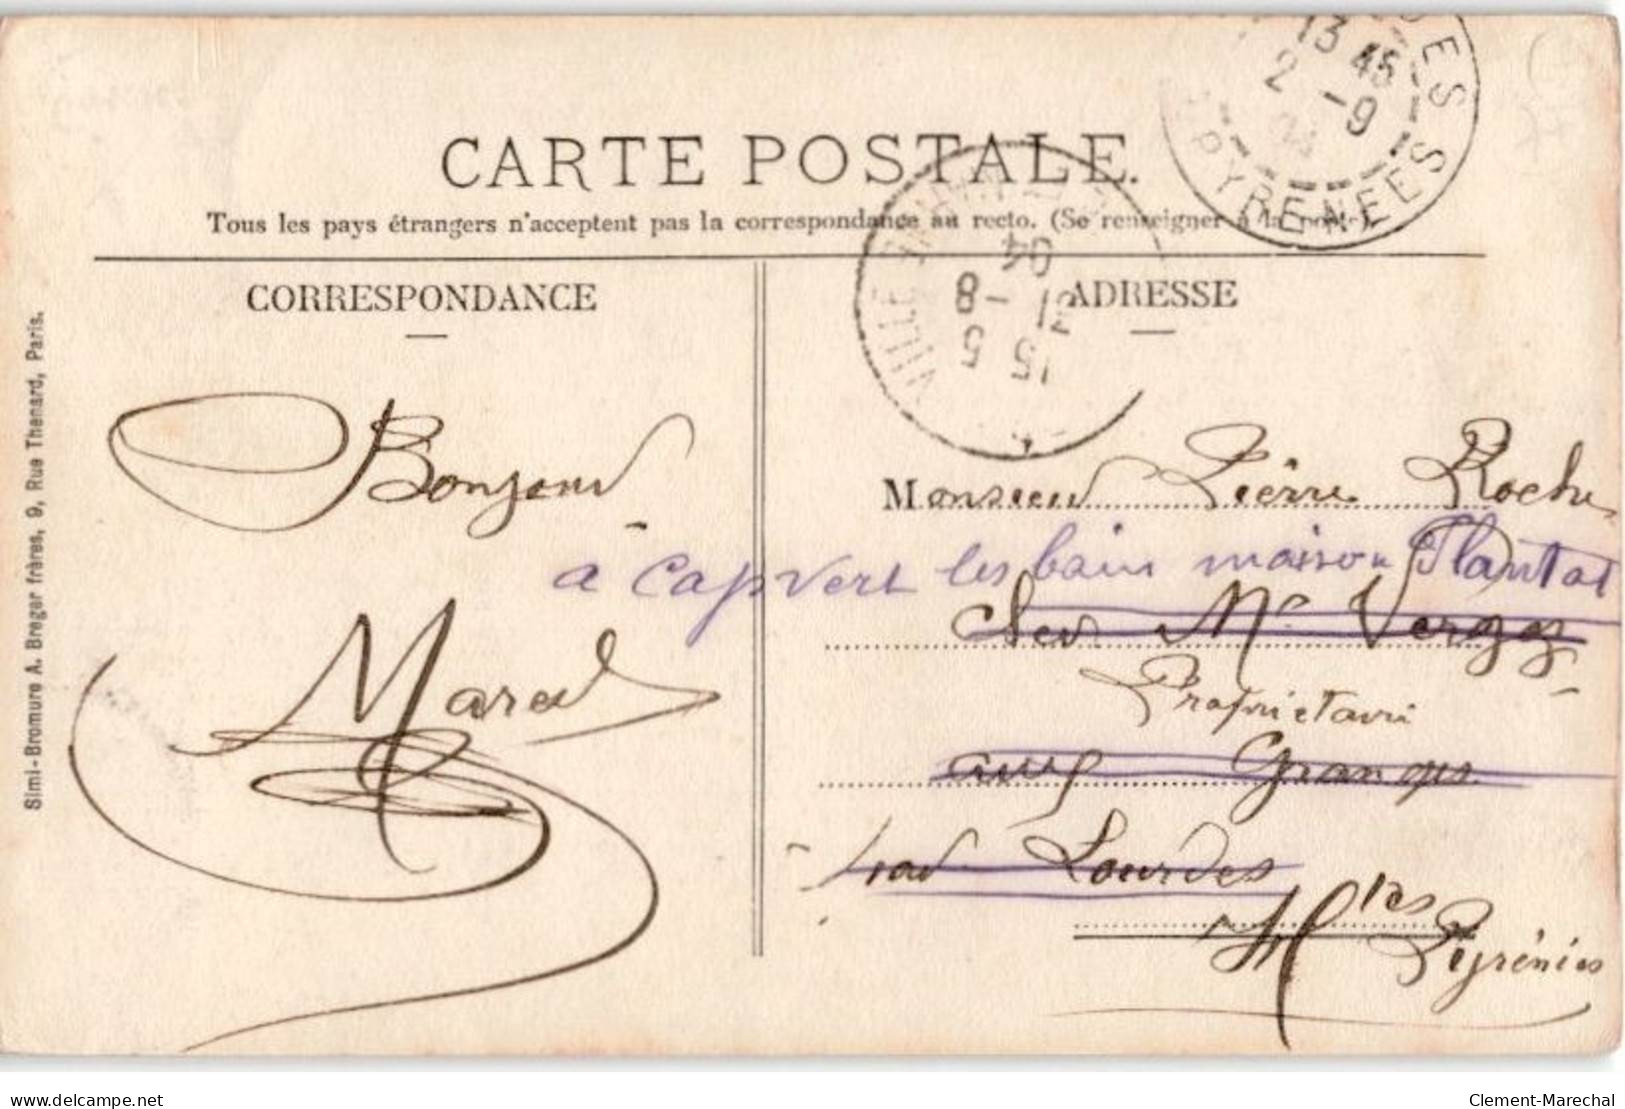 CARTE POSTALE.
Tous les pays étrangers n'acceptent pas la correspondance au recto. (Se renseigner à la poste).
CORRESPONDANCE
ADRESSE
Simi-Bromure A. Breger frères, 9, Rue Thenard, Paris.
Bonjour
Marcel
Monsieur Pierre Roche
a Capvert les bains maison Plantat
Mr
Propriétaire
aux Granges
par Lourdes
Htes
Pyrénées
13 45
2 -9
PYRENEES
VILLE
15 5
31 -8
04
www.delcampe.net
Clement-Marechal